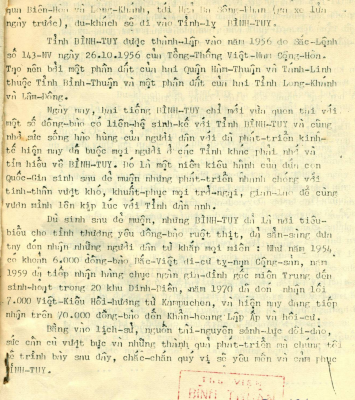 qua Biên-Hòa và Long-Khánh, tới Ngã Ba Ông-Đồn (ga xe lửa
ngày trước), du-khách sẽ đi vào Tỉnh-lỵ BÌNH-TUY.
Tỉnh BÌNH-TUY được thành-lập vào năm 1956 do Sắc-Lệnh
số 143-NV ngày 26.10.1956 của Tổng-Thống Việt-Nam Cộng-Hòa.
Tạo nên bởi một phần đất của hai Quận Hàm-Thuận và Tánh-Linh
thuộc Tỉnh Bình-Thuận và một phần đất của hai Tỉnh Long-Khánh
và Lâm-Đồng.
Ngày nay, hai tiếng BÌNH-TUY chỉ mới vừa quen tai với
một số đồng-bào có liên-hệ sinh-kế với Tỉnh BÌNH-TUY và cũng
nhờ sức sống hào hùng của người dân với đà phát-triển kinh-
tế hiện nay đã buộc mọi người ở các Tỉnh khác phải nhớ và
tìm hiểu về BÌNH-TUY. Đó là một niềm kiêu hãnh của đứa con
Quốc-Gia sinh sau đẻ muộn nhưng phát-triển nhanh chóng với
tinh-thần vượt khó, khuất-phục mọi trở-ngại, gian-lao để cùng
vươn mình lên kịp lúc với Tỉnh đàn anh.
Dù sinh sau đẻ muộn, nhưng BÌNH-TUY đã là nơi tiêu-
biểu cho tình thương yêu đồng-bào ruột thịt, đã sẵn-sàng đưa
tay đón nhận những người dân từ khắp mọi miền : Như năm 1954,
có khoản 6.000 đồng-bào Bắc-Việt di-cư tỵ-nạn Cộng-sản, năm
1959 đã tiếp nhận hàng chục ngàn gia-đình gốc miền Trung đến
sinh-hoạt trong 20 khu Dinh-Điền, năm 1970 đã đón nhận lối
7.000 Việt-Kiều Hồi-hương từ Kampuchea, và hiện nay đang tiếp
nhận trên 70.000 đồng-bào đến Khẩn-hoang Lập Ấp và hồi-cư.
Bằng vào lịch-sử, nguồn tài-nguyên sản-lực dồi-dào,
sức cần cù vượt bực và những thành quả phát-triển mà chúng tôi
sẽ trình bày sau đây, chắc-chắn quý vị sẽ yêu mến và cảm phục
BÌNH-TUY.
THƯ VIỆN
BÌNH THUẬN